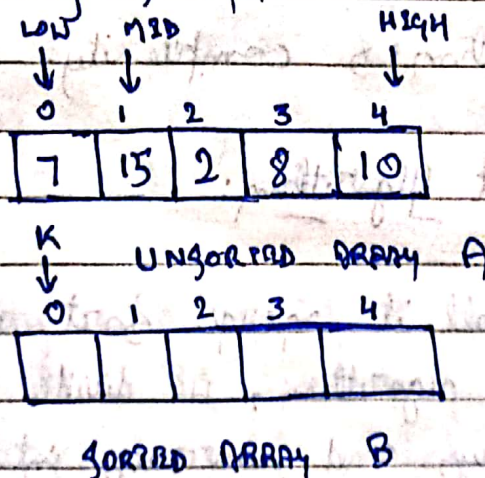 LOW MID HIGH
0 1 2 3 4
7 15 2 8 10
K UNSORTED ARRAY A
0 1 2 3 4
SORTED ARRAY B